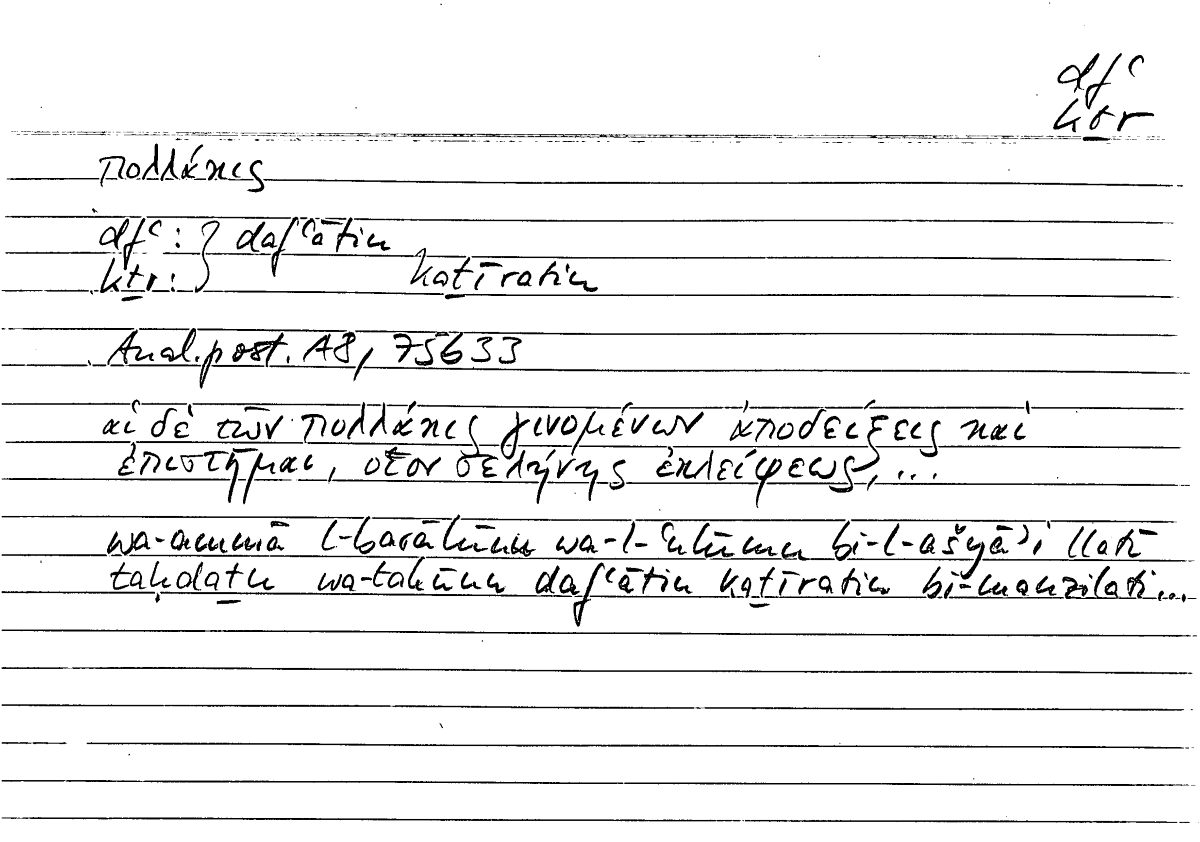 dfʿ
kṯr
πολλάκις
dfʿ : } dafʿātin
kṯr : kaṯīratin
Anal. post. A8, 75b33
αἱ δὲ τῶν πολλάκις γινομένων ἀποδείξεις καὶ
ἐπιστῆμαι, οἷον σελήνης ἐκλείψεως, ...
wa-ammā l-barāhīnu wa-l-ʿulūmu bi-l-ašyāʾi llatī
taḥdaṯu wa-takūnu dafʿātin kaṯīratin bi-manzilati...